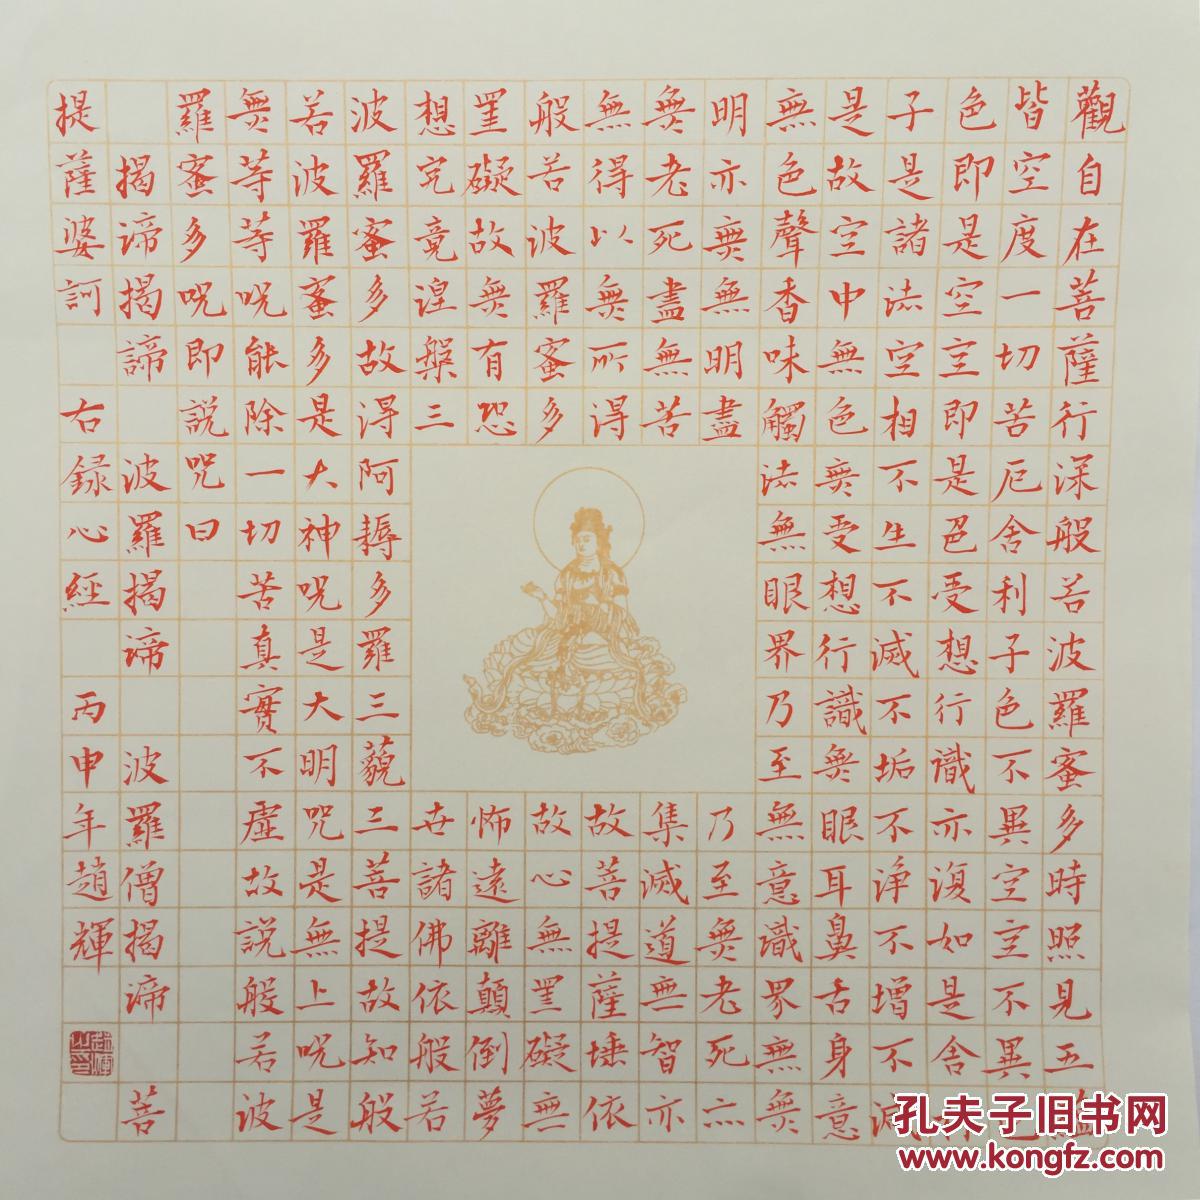 觀自在菩薩行深般若波羅蜜多時照見五蘊
皆空度一切苦厄舍利子色不異空空不異色
色即是空空即是色受想行識亦復如是舍利
子是諸法空相不生不滅不垢不淨不增不減
是故空中無色無受想行識無眼耳鼻舌身意
無色聲香味觸法無眼界乃至無意識界無無
明亦無無明盡乃至無老死亦
無老死盡無苦集滅道無智亦
無得以無所得故菩提薩埵依
般若波羅蜜多故心無罣礙無
罣礙故無有恐怖遠離顛倒夢
想究竟涅槃三世諸佛依般若
波羅蜜多故得阿耨多羅三藐三菩提故知般
若波羅蜜多是大神咒是大明咒是無上咒是
無等等咒能除一切苦真實不虛故說般若波
羅蜜多咒即說咒曰
揭諦揭諦 波羅揭諦 波羅僧揭諦 菩
提薩婆訶 右録心經 丙申年趙輝
趙輝之印
孔夫子旧书网
www.kongfz.com